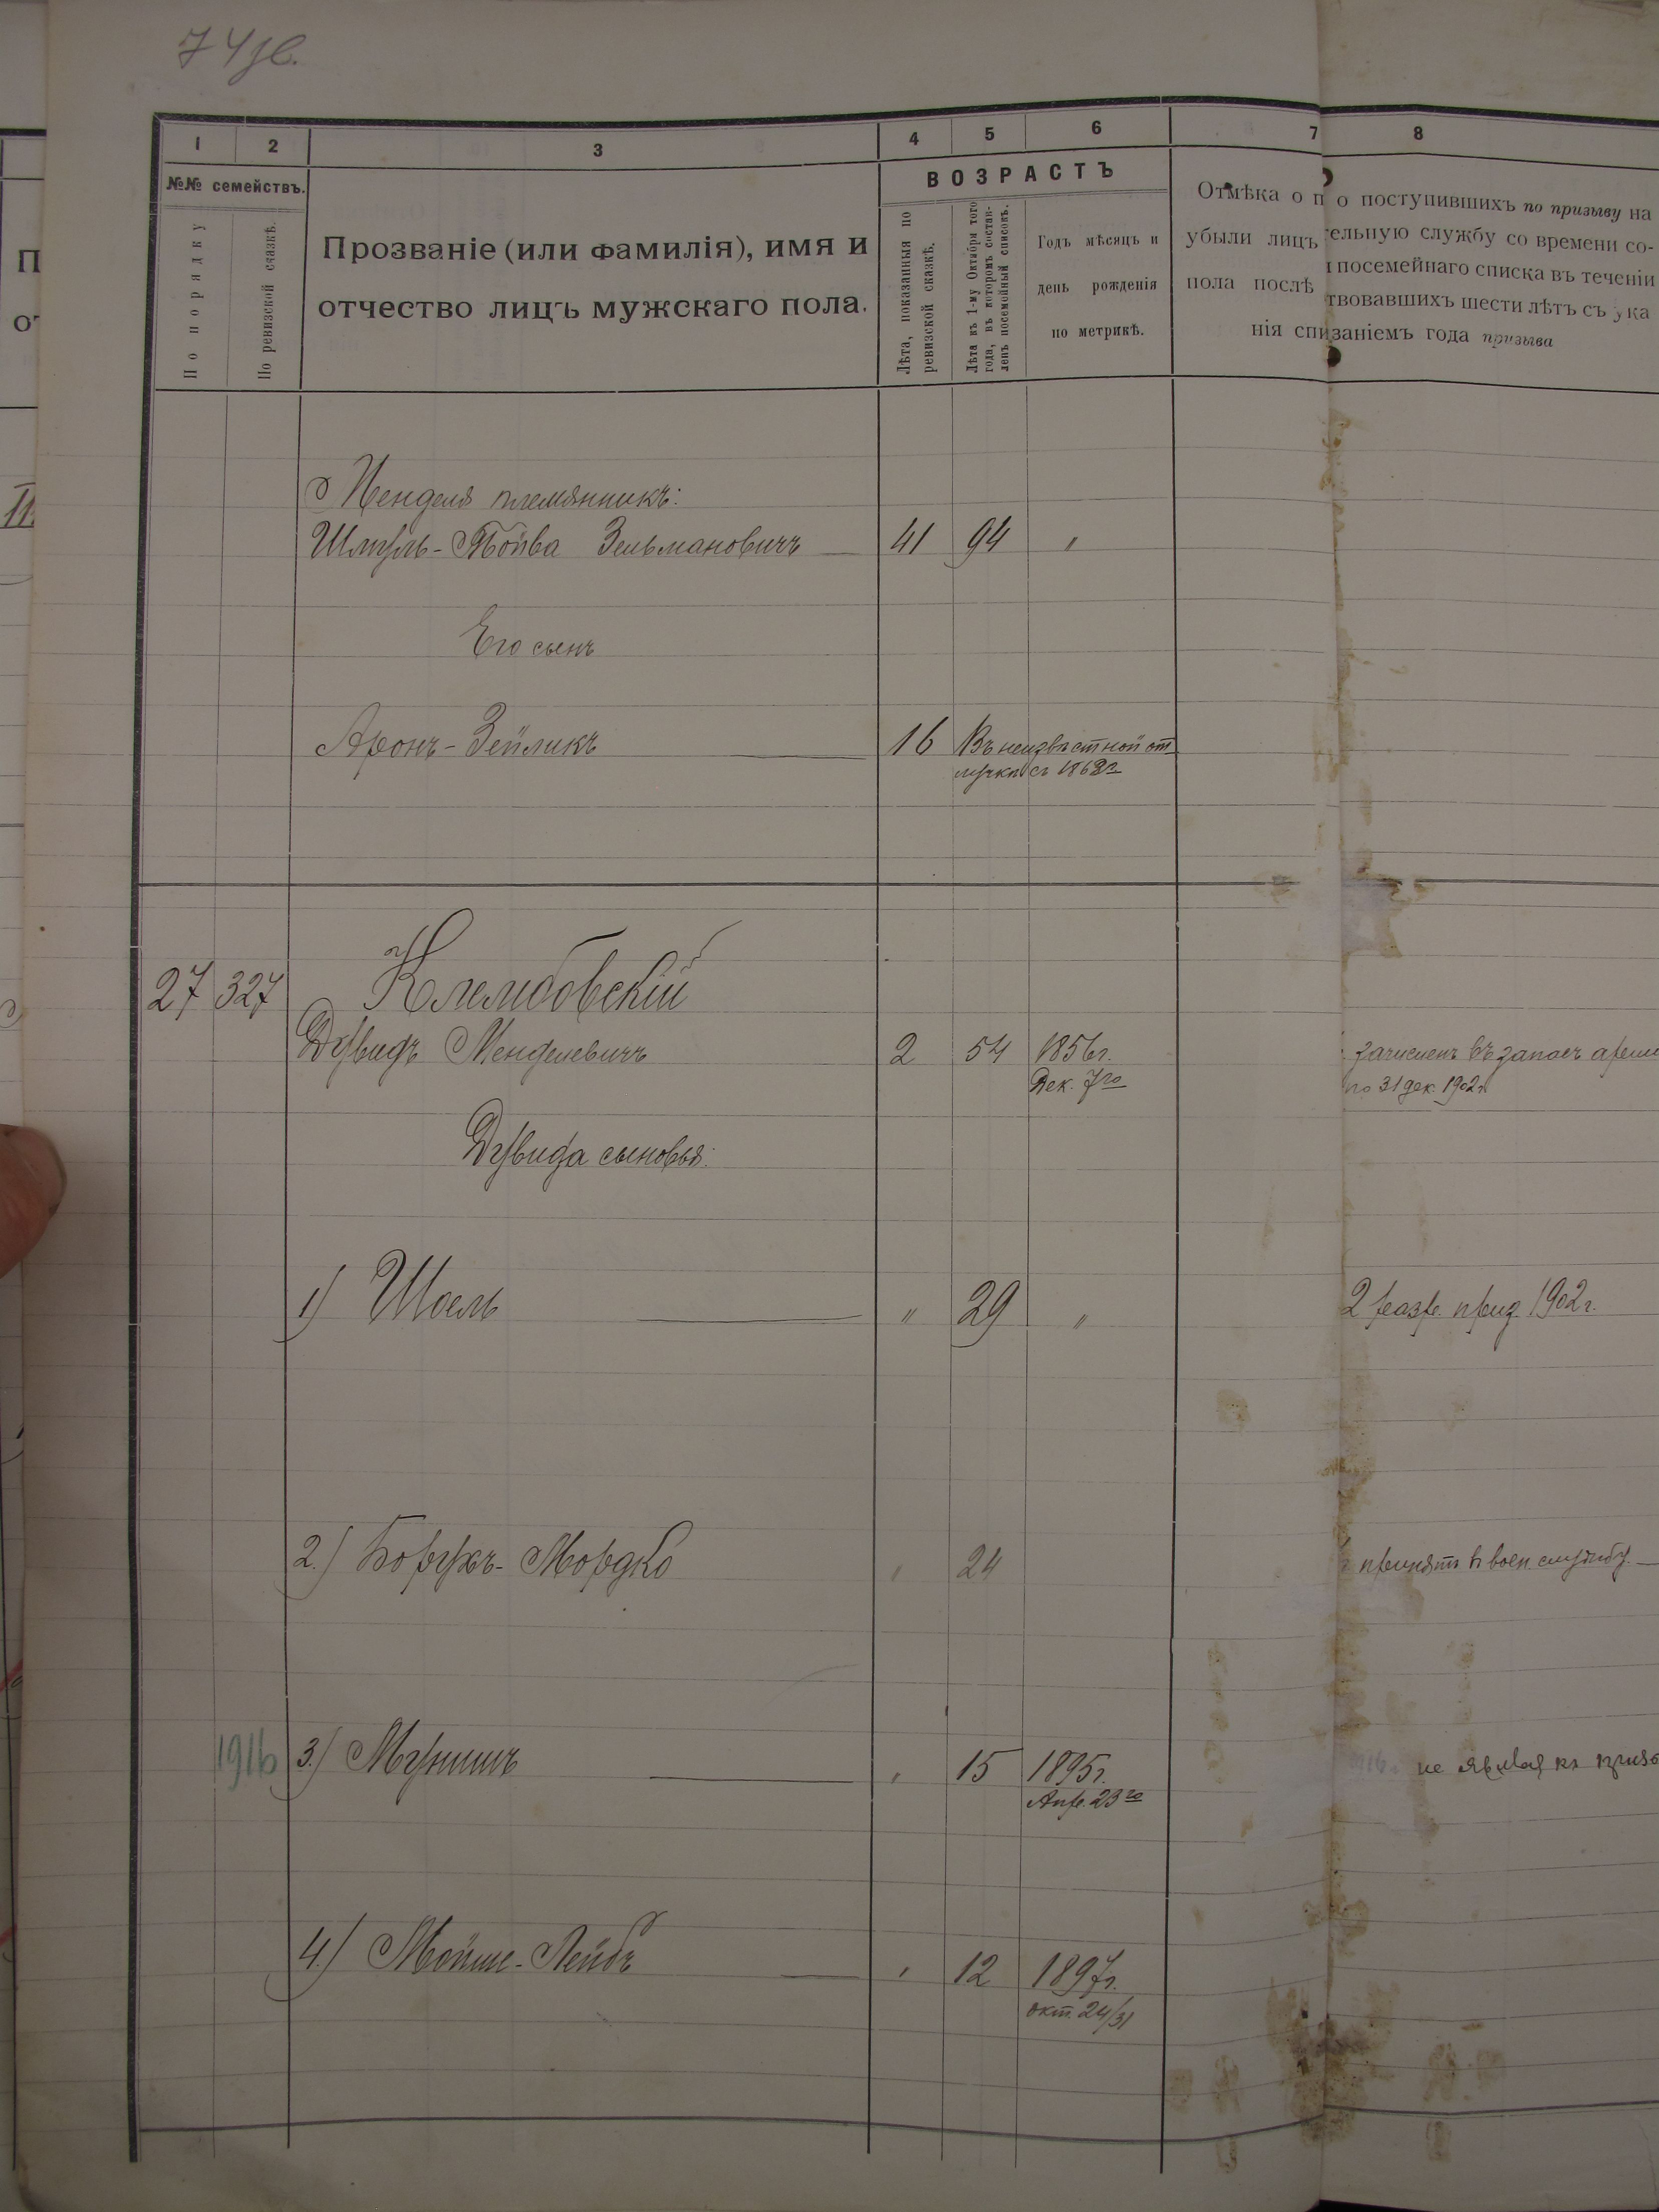 74 об.
1 2 3 4 5 6 7 8
№№ семействъ.
По порядку
По ревизской сказкѣ.
Прозваніе (или фамилія), имя и
отчество лицъ мужскаго пола.
ВОЗРАСТЪ
Лѣта, показанныя по
ревизской сказкѣ.
Лѣта къ 1-му Октября того
года, въ которомъ состав-
ленъ посемейный списокъ.
Годъ мѣсяцъ и
день рожденія
по метрикѣ.
Отмѣка о п
убыли лицъ
пола послѣ
нія спи
о поступившихъ по призыву на
тельную службу со времени со-
посемейнаго списка въ теченіи
твовавшихъ шести лѣтъ съ ука
заніемъ года призыва
Менделя племянникъ:
Шмуль-Тойва Зельмановичъ 41 94 "
Его сынъ
Аронъ-Зейликъ 16 Въ неизвѣстной от
лучкѣ съ 1862г
27 327 Клембовскій
Дувидъ Менделевичъ 2 54 1856г.
Дек. 7го
зачисленъ въ запасъ арміи
по 31 дек. 1902г.
Дувида сыновья:
1) Шоель " 29 " 2 разр. приз. 1902 г.
2.) Борухъ-Мордко " 24 принятъ в воен. службу.
1916 3.) Мунишъ " 15 1895г.
Апр. 23го
не явился къ призы
4.) Мойше-Лейбъ " 12 1897г.
окт. 24/31